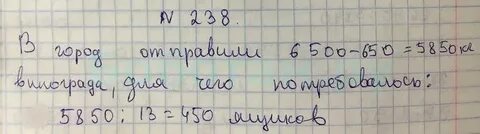 N 238.
В город отправили 6500-650=5850кг
винограда, для чего потребовалось:
5850:13=450 ящиков